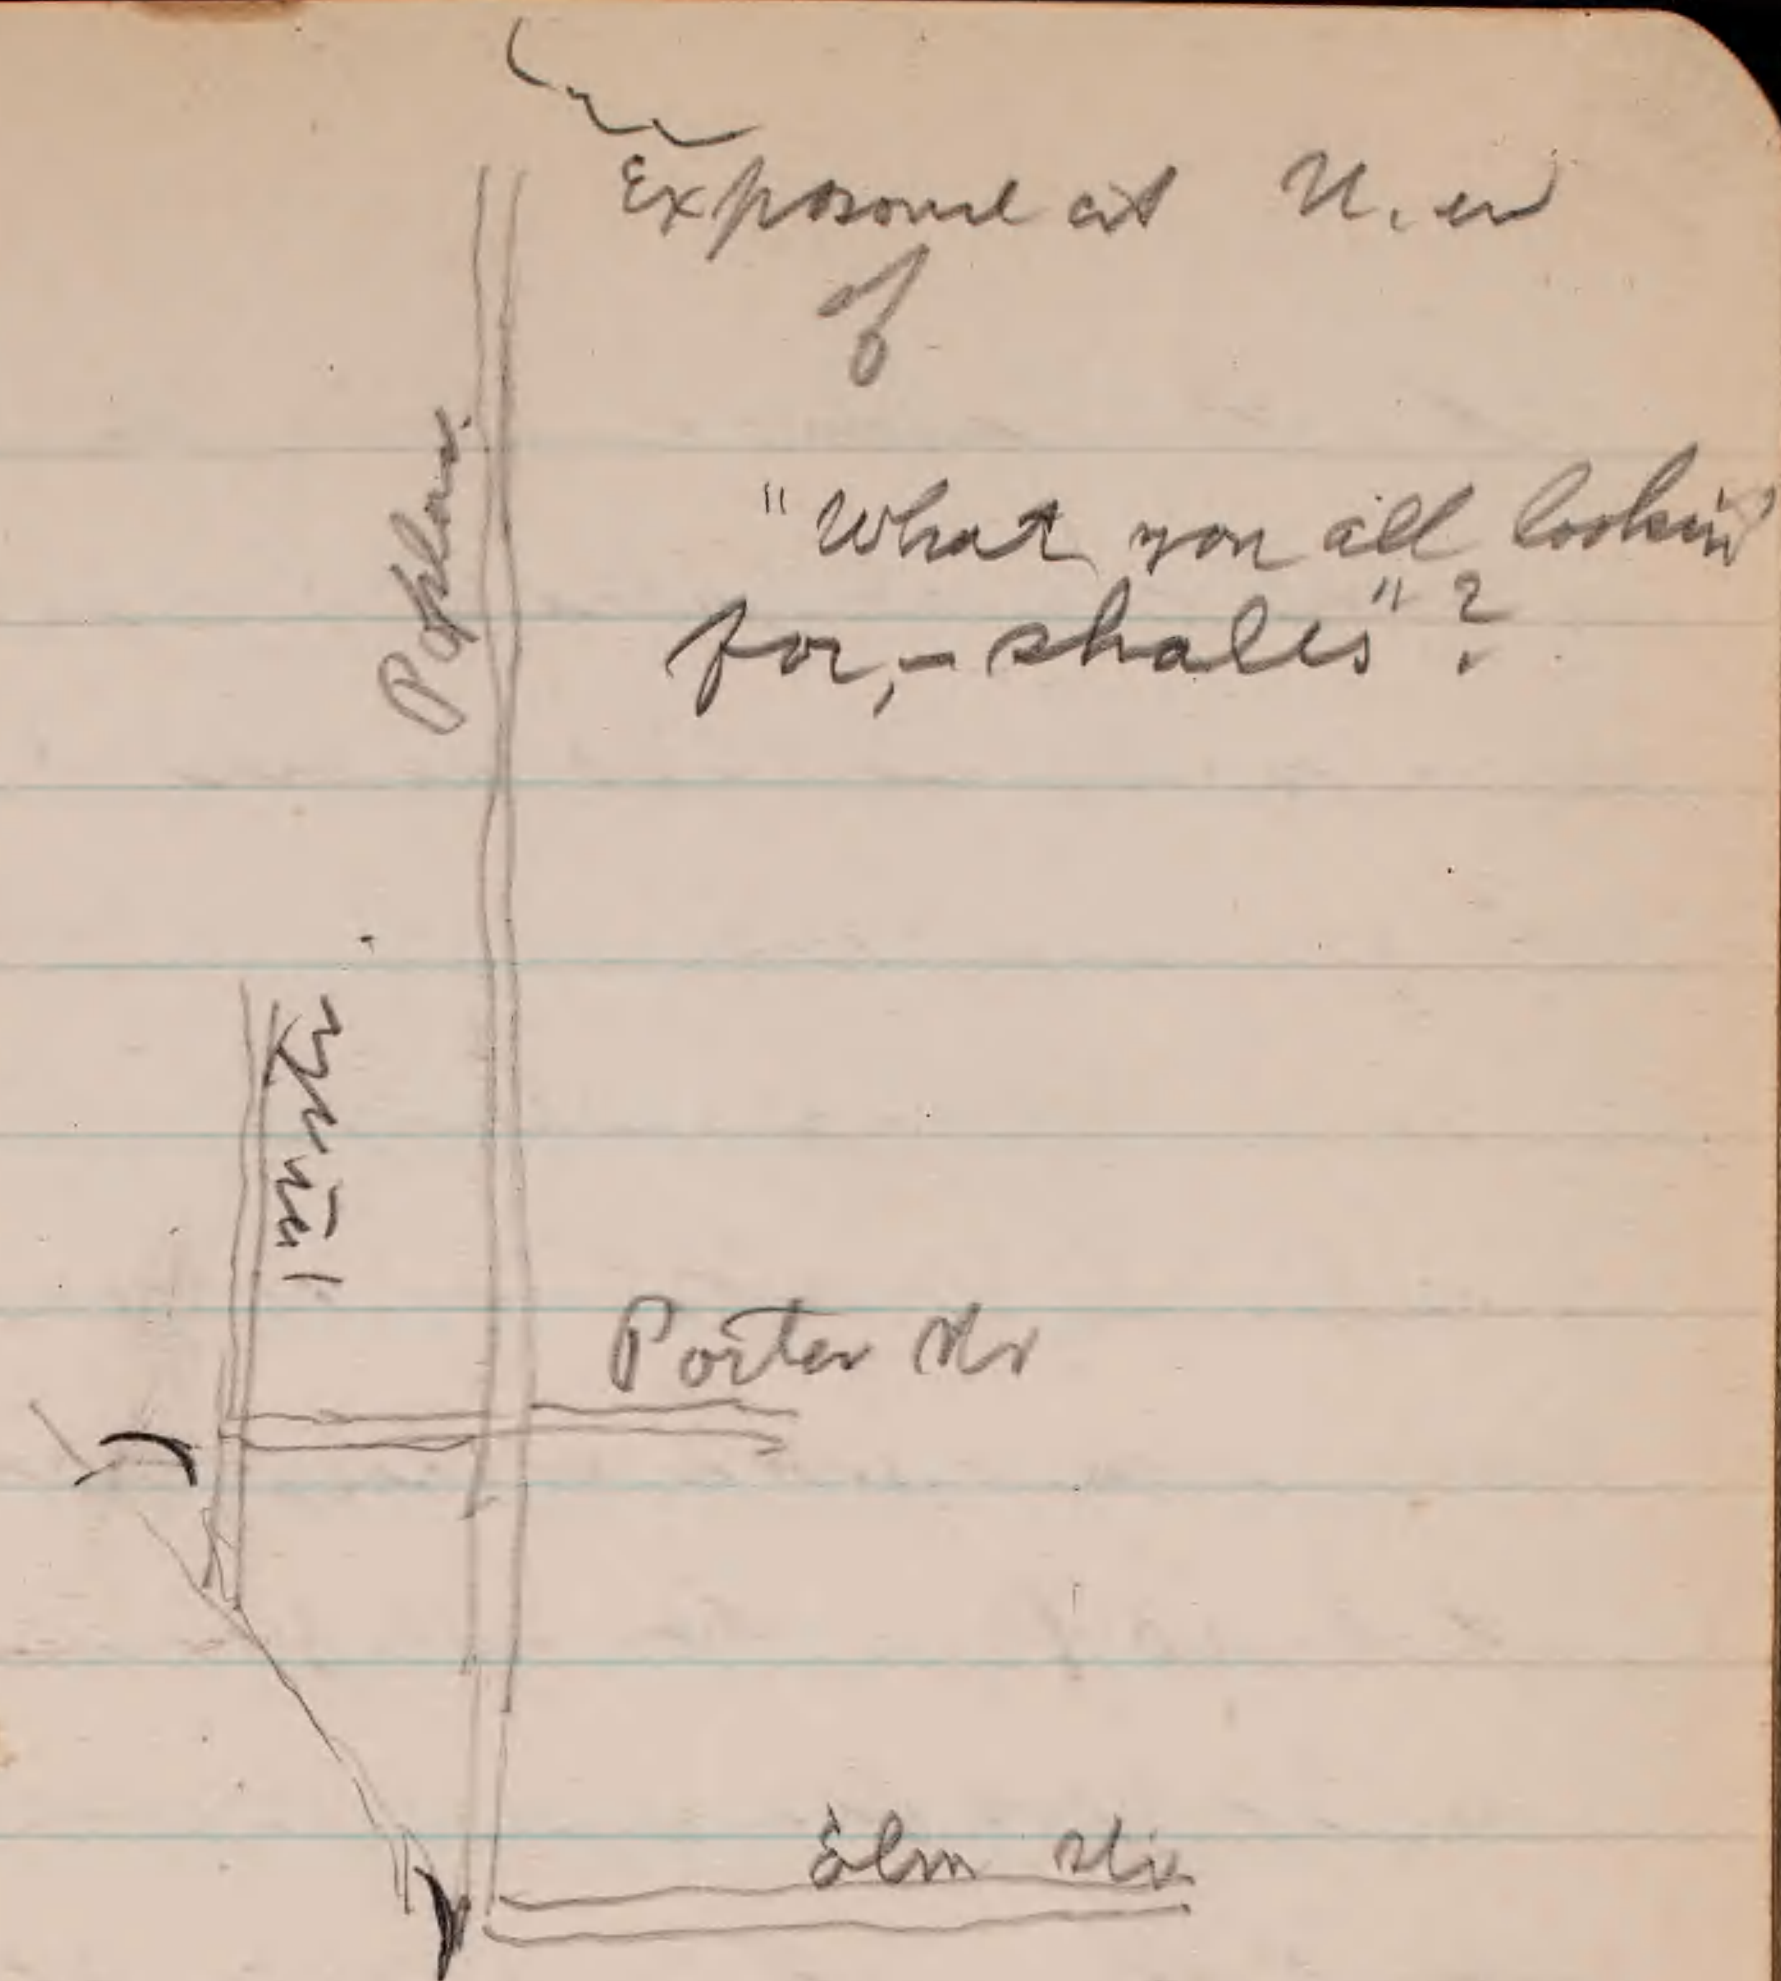 Exposure at N. en
of
"What you all lookin'
for,- shales"?
Poplar.
Porter Str
Elm Str